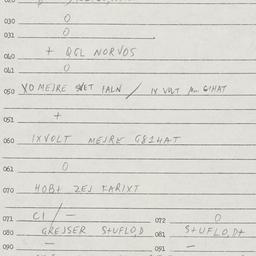 030 O
031 O
040 + QGL NORVOS
041 O
050 VO MEJRE SVET IALN / IX VOLT GIHAT
051 +
060 IXVOLT MEJRE G81HAT
061 O
070 HOB+ ZEJ TARIXT
071 CI / — 072 O
080 GREJSER S+UFLO,D 081 S+UFLO,D+
090 — 091 —